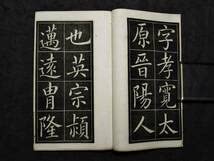 字孝寬太
原晉陽人
也英宗穎
邁遠胄隆